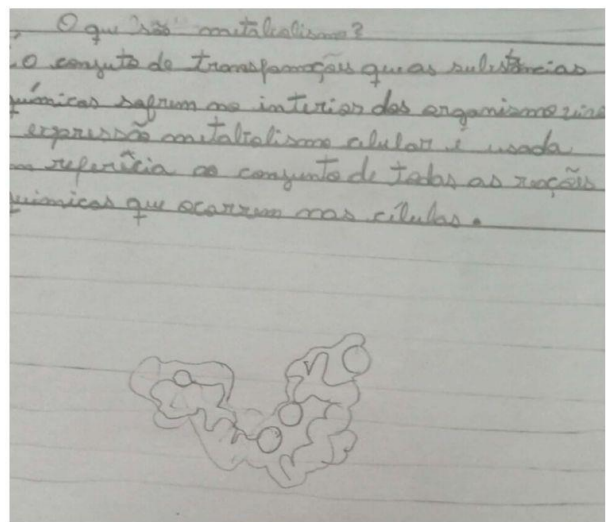 O que são metabolismo?
É o conjuto de transfomações que as substâncias
químicas sofrem no interior dos organismo vivos
expressão metabolismo celular é usada
em referêcia ao conjunto de todas as reações
químicas que ocorrem nas células.